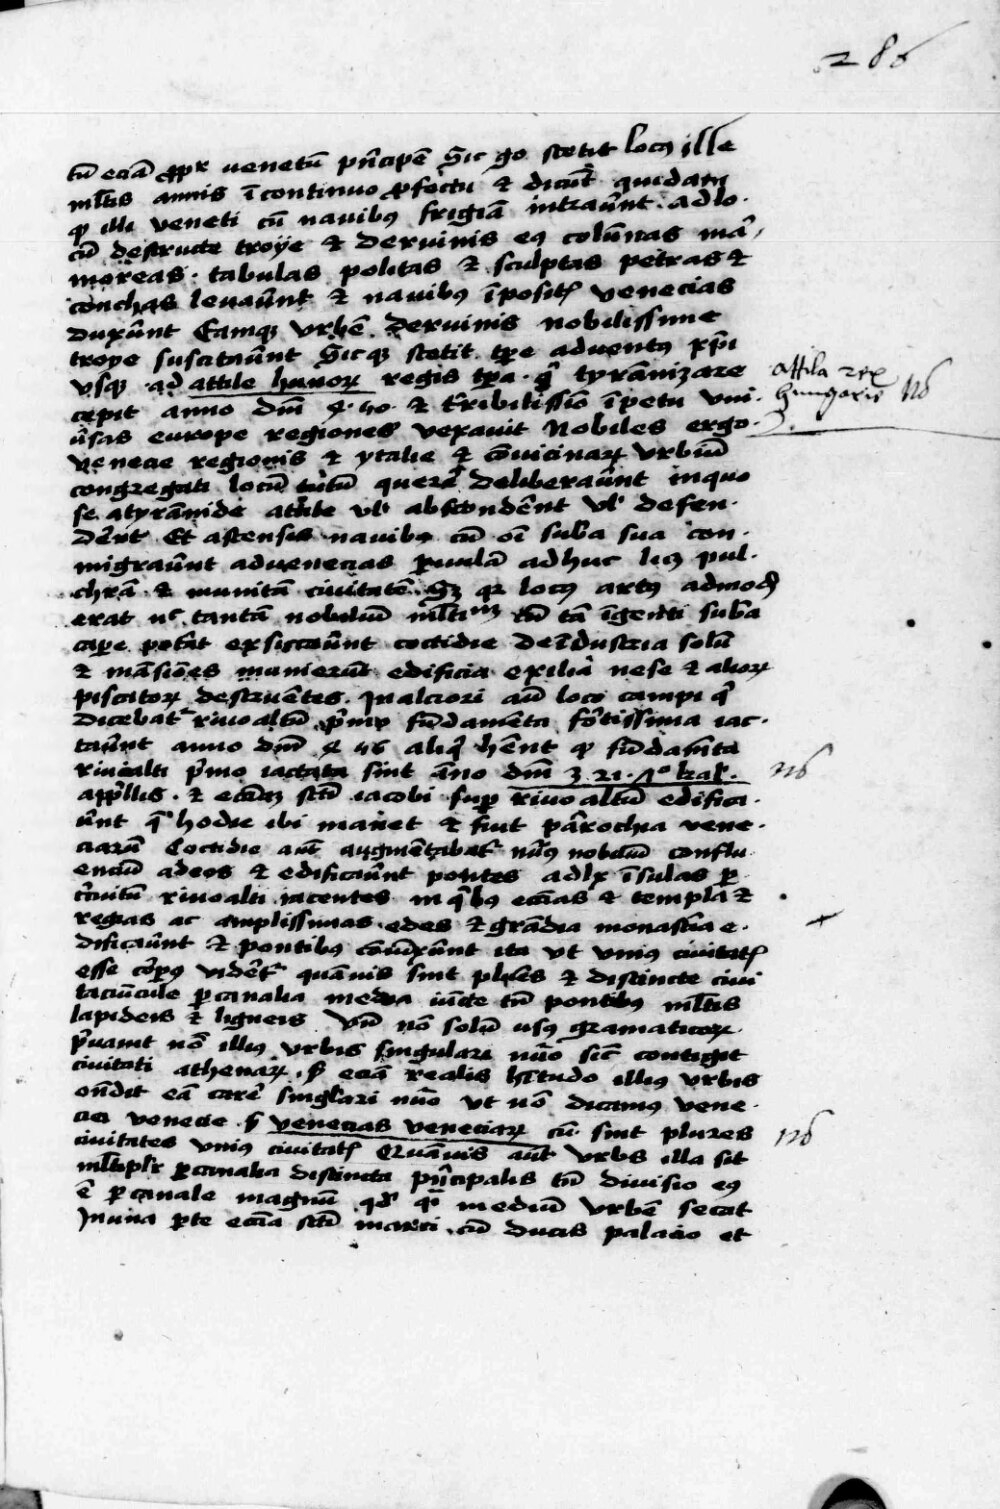 286
tũ eciã ꝓpr venetũ pñcipẽ Sic gͦ stetit locꝰ ille
ml̃tis annis ĩ continuo ꝓfectu & dicũt quidam
ꝙ illi veneti cũ navibꝰ frigiã intraũnt · ad lo·
cũ destructe troye & de ruinis eꝰ colũnas mar̃
moreas · tabulas politas & sculptas petras &
conchas levaũnt & navibꝰ ĩpositꝭ venecias
duxũnt Eamqꝫ vrbẽ de ruinis nobilissime
troye suscitaũnt Sicqꝫ stetit tp̃e adventꝰ xp̃i
vsqꝫ ad attile hunoꝝ regis tp̃a · q̃ tyrãnizare
cepit anno dñi 440 · & t̃ribilissiõ ĩpetu vni·
ũsas europe regiones vexavit Nobiles ergo
venecie regionis & ytalie & cõvicinaꝝ vrbiũ
congregati locũ tutũ querẽ deliberaũnt in quo
se a tyrãnide attile vl̃ abscondẽnt vl̃ defen·
dẽnt Et ascensis navibꝰ cũ oĩ suba sua con·
migraũnt ad venecias ꝑvulã adhuc licꝫ pul·
chrã & munitã civitatẽ · Sꝫ qꝛ locꝰ artꝰ admodũ
erat nc̃ tantã nobiliũ ml̃tinẽ cũ tã ĩgenti suba
cape potat exsiccaũnt cottidie de ĩdustria solũ
& mãsiones munierũt edificia exilia nese & alioꝝ
piscatoꝝ destruẽtes · In alciori aũ loco campi q̃
dicebatᷣ rivo altũ p̃mo fũdamẽta fõtissima iac·
taũnt anno dñi 4 46 aliq̃ hẽnt ꝙ fũdamẽta
rivialti p̃mo iactata sint ãno dñi 3 21 · 1ͦ kal̃ ·
aprllis · & ecciaꝫ sc̃ti iacobi suꝑ rivo altũ edifica·
ũnt q̃ hodie ibi manet & fiut parochia vene·
ciarũ Cottidie aut augmẽtabatᷣ nũꝰ nobiliũ conflu
enciũ ad eos & edificaũnt pontes ad lx ĩsulas ꝑ
c̃cuitũ rivoalti iacentes in qͥbꝰ eccias & templa &
regias ac amplissimas edes & grãdia monastia e·
dificaũnt & pontibꝰ cõiũxũnt ita vt vniꝰ civitatꝭ
esse corpꝰ vidẽtᷣ quãvis sint plũes & distincte civi
taciũcule ꝑ canalia media iũcte tñ pontibus ml̃tis
lapideis & ligneis Vñ nõ solũ usꝰ gramaticoꝝ
p̃vauit nõ illiꝰ vrbis singulari nũo sic̃ contigit
civitati athenaꝝ · sꝫ eciã realis hitudo illiꝰ vrbis
onñdit eã carẽ singlari nũo vt nõ dicamꝰ vene·
cia venecie sꝫ venecias veneciaꝝ cũ sint plures
civitates vniꝰ civitatꝭ Quãvis aut vrbs illa sit
ml̃tiplr ꝑ canalia distincta pñcipalis tñ divisio eꝰ
ẽ ꝑ canale magnũ qd̃ qͣi mediũ vrbẽ secat
In una ꝑte eccia sc̃ti marci cũ ducis palacio et
Attila rex
hungarie nb
nb
nb